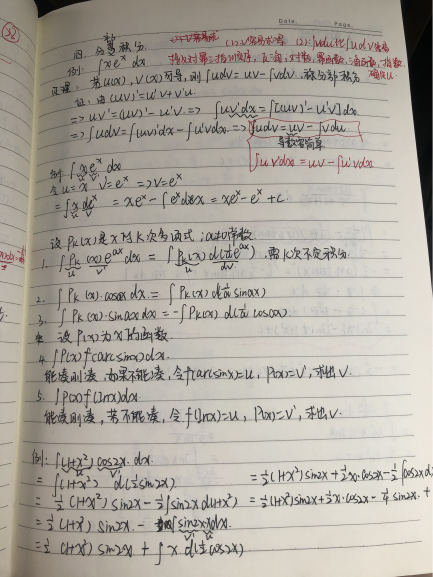 Date. Page.
四. 分部积分
(1). v容易求得 (2). ∫vdu比∫udv容易
例: ∫xe^x dx
定理: 若u(x), v(x)可导, 则∫udv = uv - ∫vdu. 称分部积分
证: 由(uv)' = u'v + v'u.
=> uv' = (uv)' - u'v => ∫uv'dx = ∫[(uv)' - u'v]dx
=> ∫udv = ∫(uv)'dx - ∫u'vdx => ∫udv = uv - ∫vdu
导数更简单
∫uv'dx = uv - ∫u'vdx
例 ∫xe^x dx
令u = x v' = e^x => v = e^x
= ∫x de^x = xe^x - ∫e^x dx = xe^x - e^x + c.
设P_k(x)是x的k次多项式; a≠0常数
1. ∫P_k(x)e^{ax}dx = ∫P_k(x)d(1/a e^{ax}), 需k次不定积分
2. ∫P_k(x)·cosax dx = ∫P_k(x)d(1/a sinax)
3. ∫P_k(x)·sinax dx = -∫P_k(x)d(1/a cosax)
设P(x)为x的函数
4. ∫P(x)f(arcsinx)dx.
能凑则凑, 如果不能凑, 令f(arcsinx)=u, P(x)=v', 求出v.
5. ∫P(x)f(lnx)dx
能凑则凑, 若不能凑, 令f(lnx)=u, P(x)=v', 求出v.
例: ∫(1+x²)cos2x·dx
= ∫(1+x²)d(½sin2x)
= ½(1+x²)sin2x - ½∫sin2x d(1+x²)
= ½(1+x²)sin2x - ∫sin2x·xdx
= ½(1+x²)sin2x + ∫x d(½cos2x)
= ½(1+x²)sin2x + ½x·cos2x - ½∫cos2x d
= ½(1+x²)sin2x + ½x·cos2x - ¼sin2x +